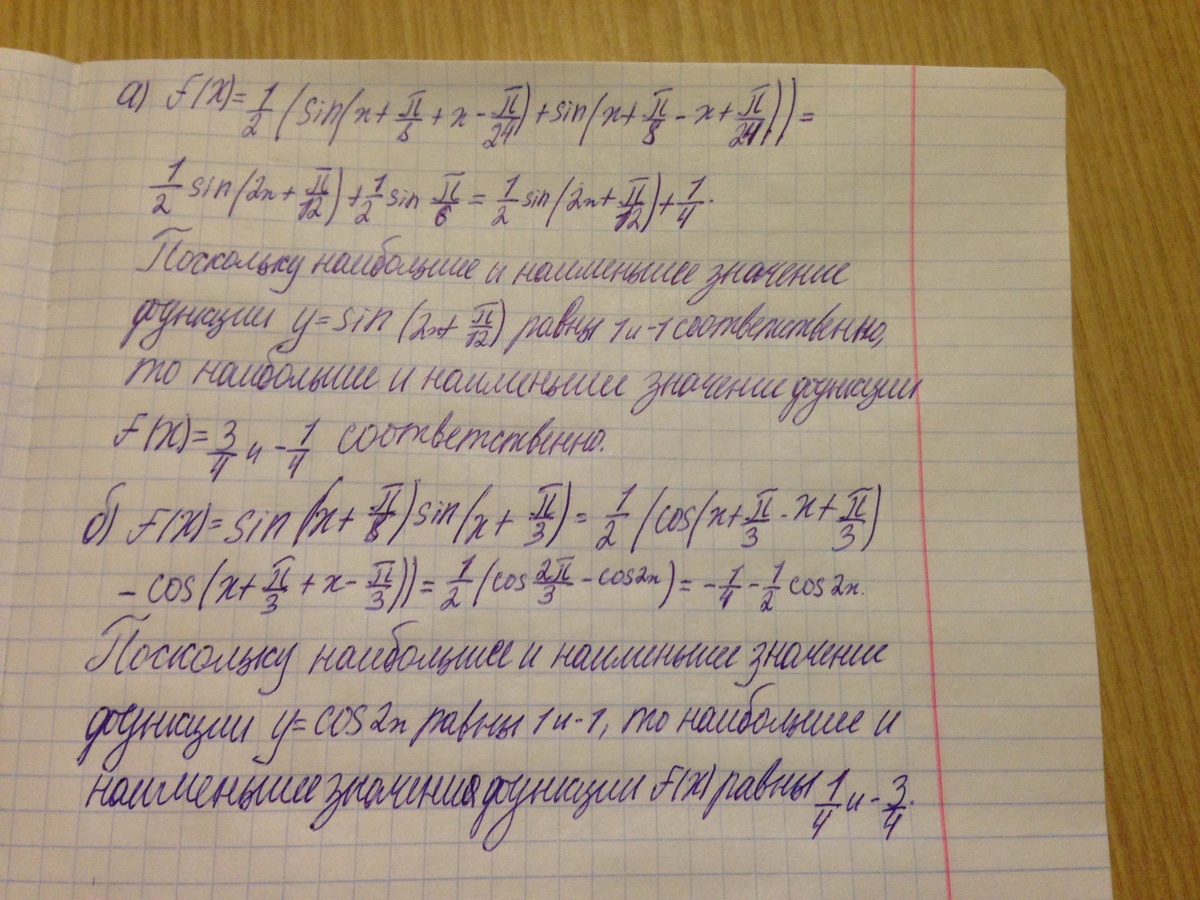 а) F(x)=1/2(sin(x+π/8+x-π/24)+sin(x+π/8-x+π/24))=
1/2 sin(2x+π/12)+1/2 sin π/6=1/2 sin(2x+π/12)+1/4.
Поскольку наибольшие и наименьшее значение
функции y=sin(2x+π/12) равны 1 и -1 соответственно,
то наибольшие и наименьшие значение функции
F(x)=3/4 и -1/4 соответственно.
б) F(x)=sin(x+π/8)sin(x+π/3)=1/2(cos(x+π/3-x+π/3)
-cos(x+π/3+x-π/3))=1/2(cos 2π/3-cos2x)=-1/4-1/2 cos2x.
Поскольку наибольшее и наименьшие значение
функции y=cos2x равны 1 и -1, то наибольшие и
наименьшее значения функции F(x) равны 1/4 и -3/4.